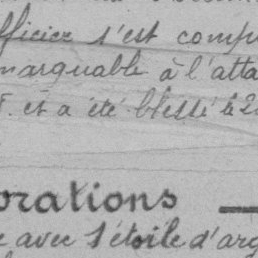 officier s'est comp
marquable à l'atta
et a été blessé
orations
avec l'étoile d'arg